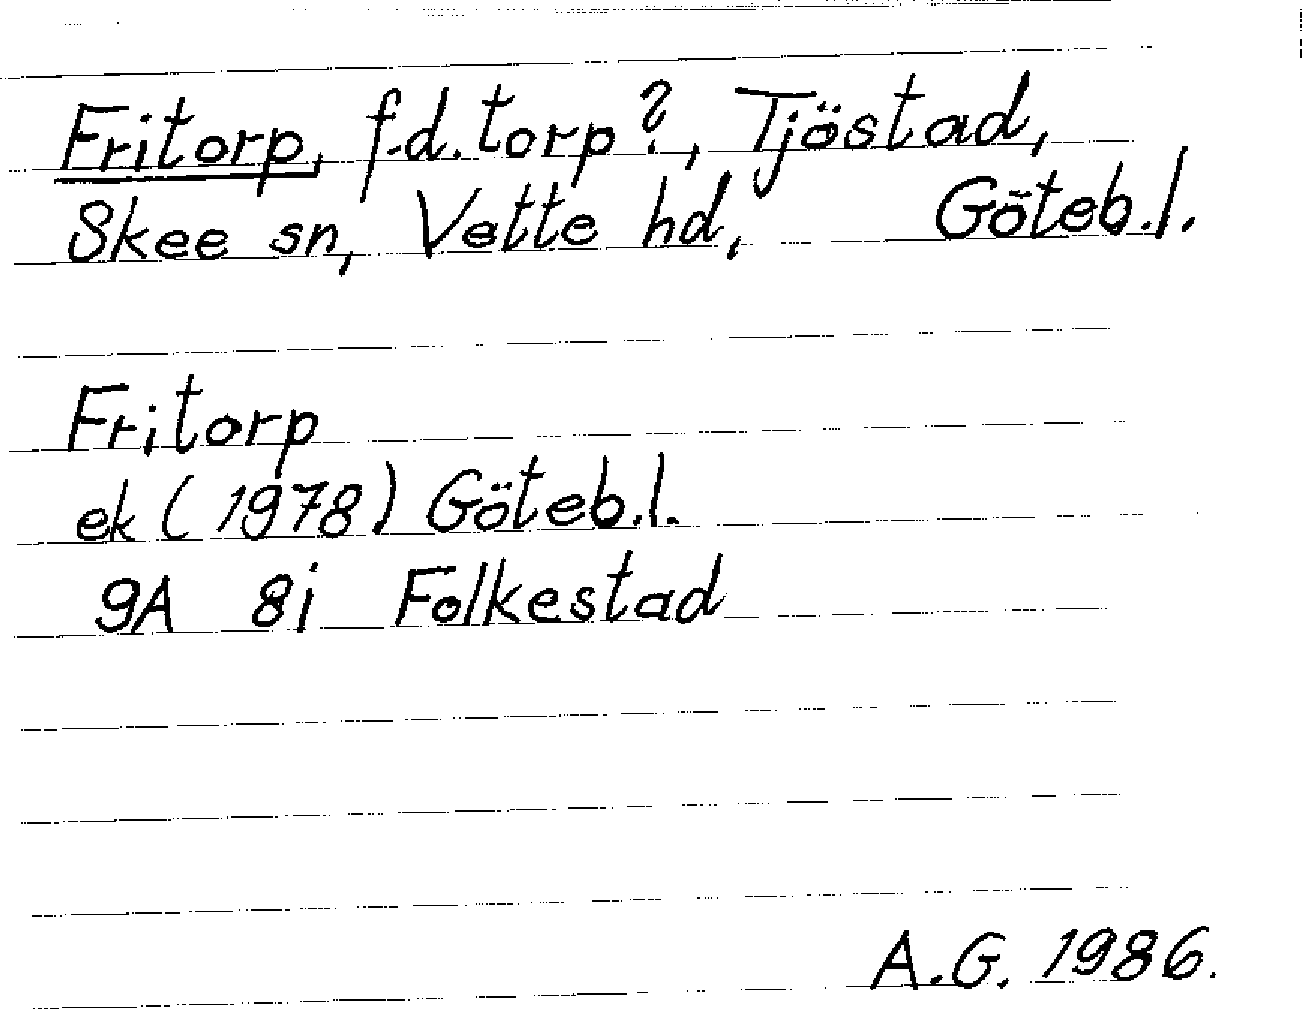 Fritorp, f.d. torp?, Tjöstad,
Skee sn, Vette hd, Göteb.l.
Fritorp
ek (1978) Göteb.l.
9A 8i Folkestad
A.G. 1986.